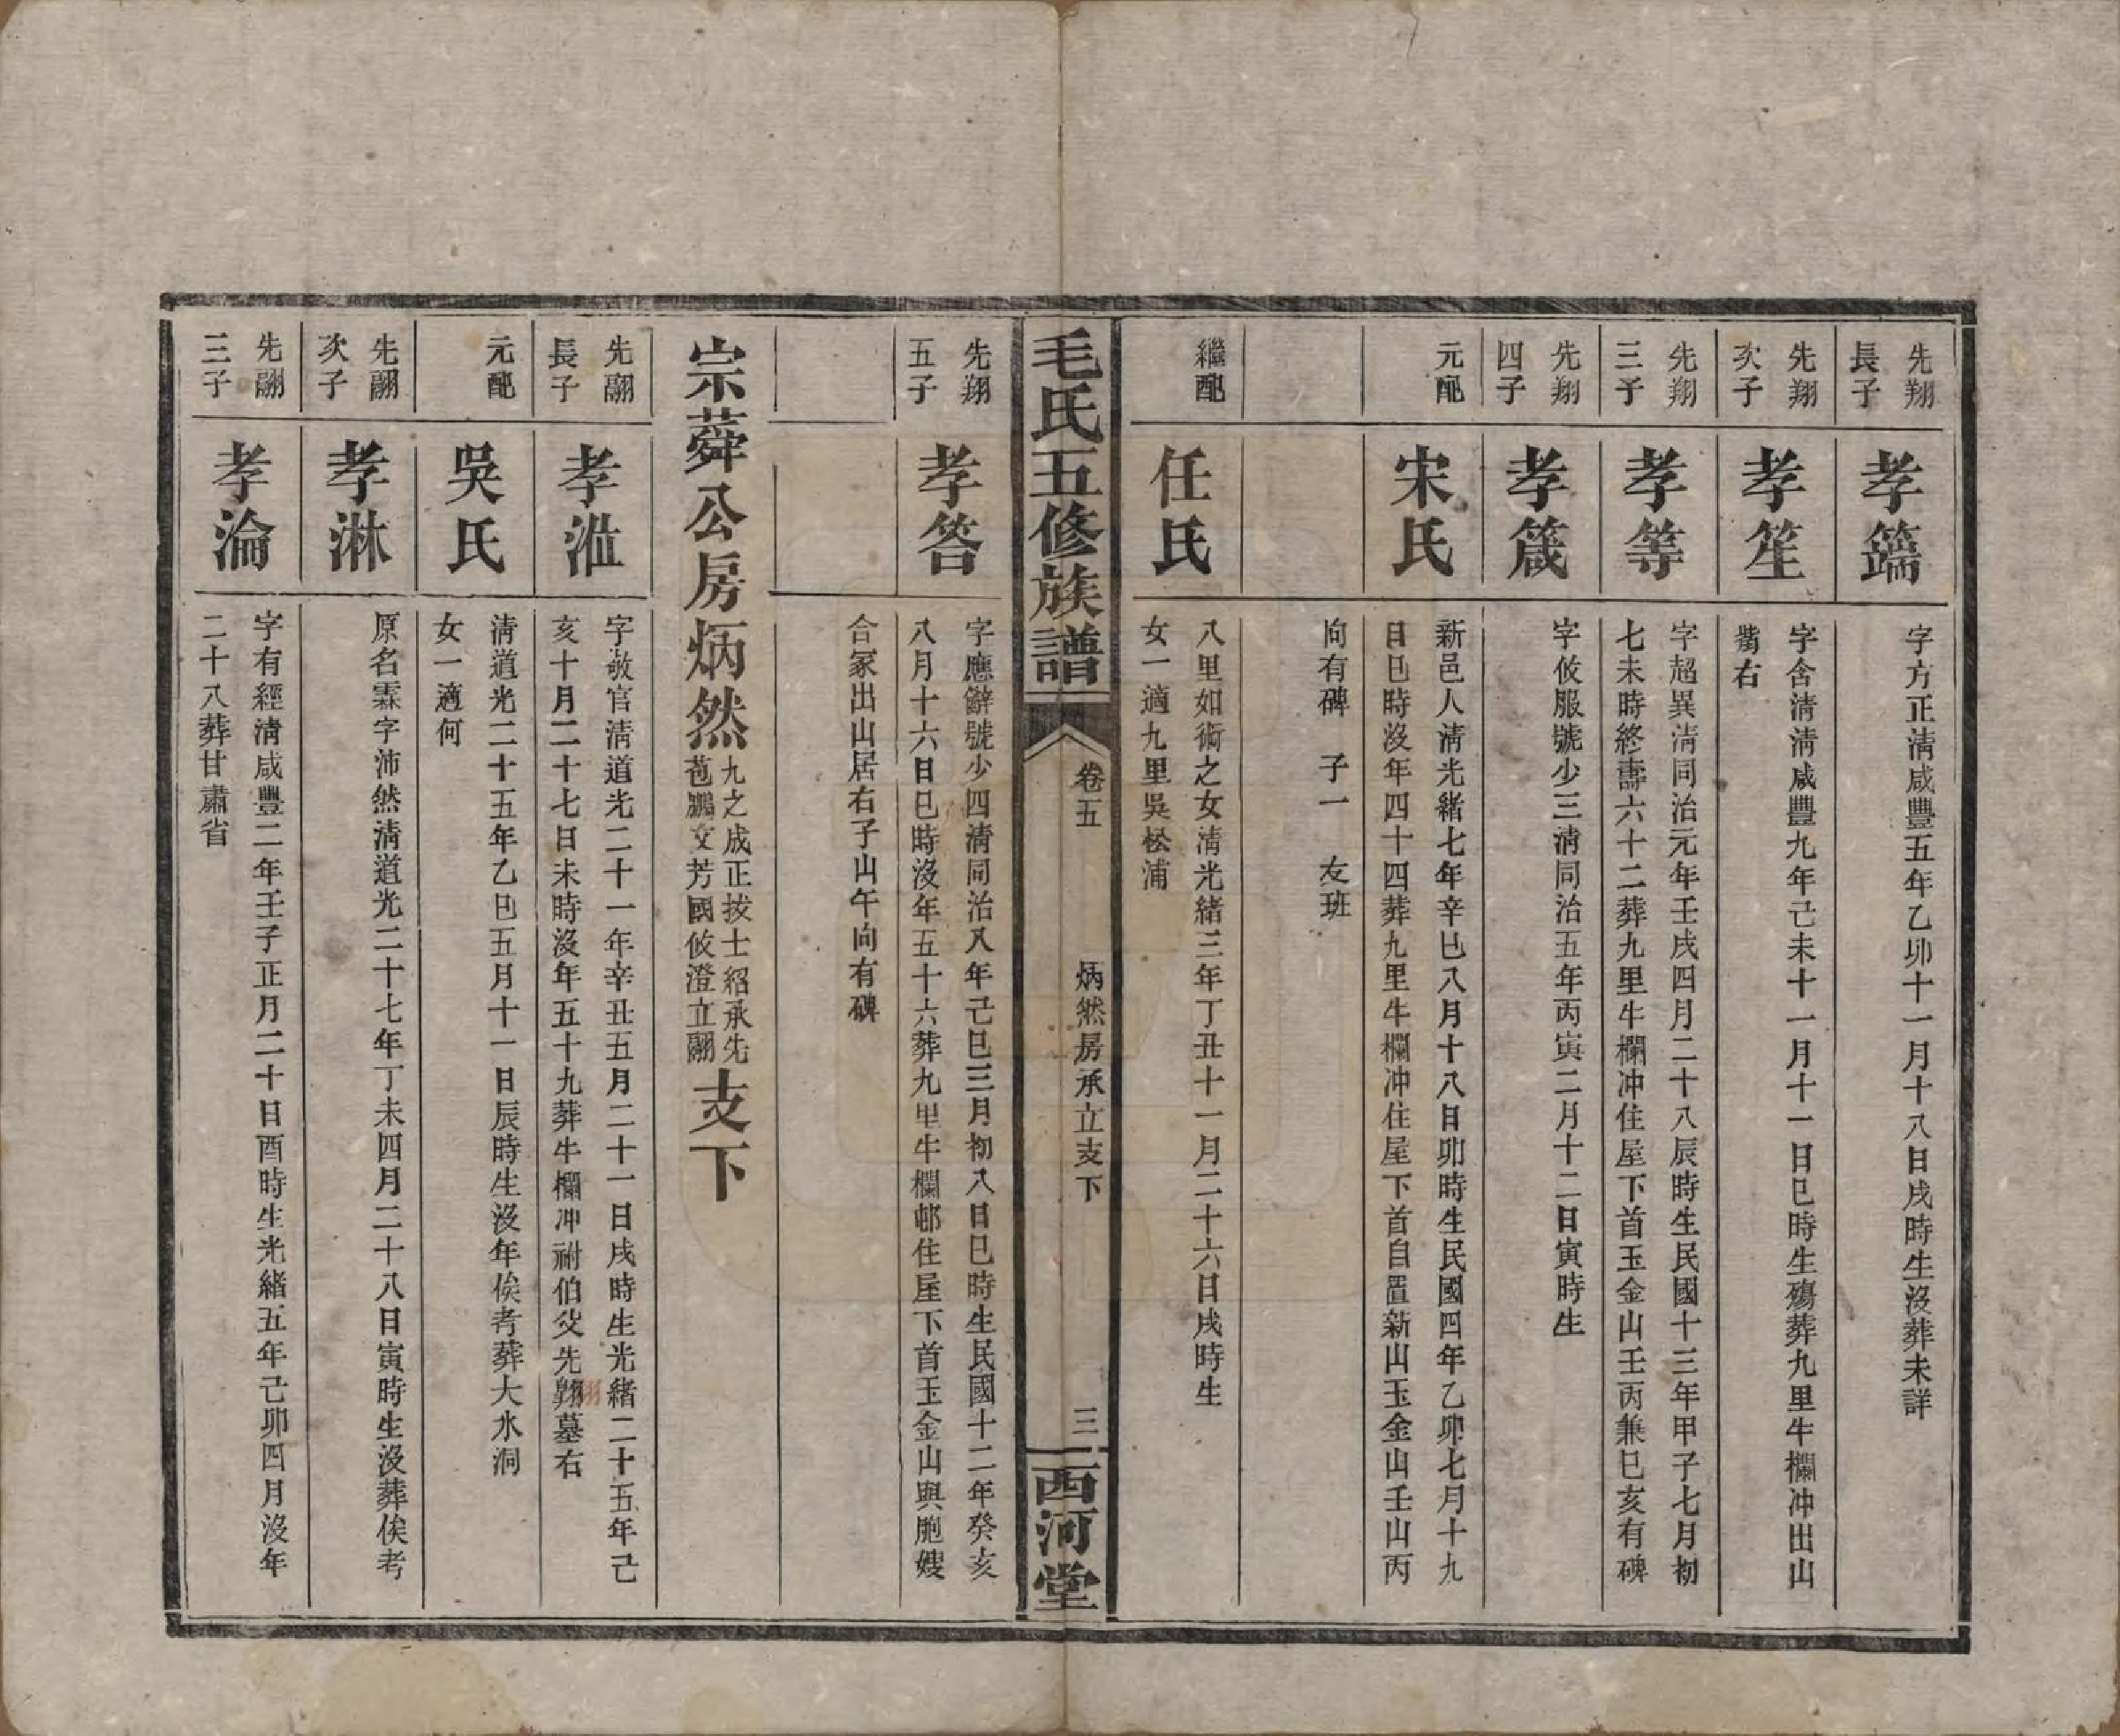 先翔
長子
孝籪
字方正清咸豐五年乙卯十一月十八日戌時生沒葬未詳
先翔
次子
孝笙
字含清清咸豐九年己未十一月十一日巳時生殤葬九里牛欄冲出山
嘴右
先翔
三子
孝等
字超異清同治元年壬戌四月二十八辰時生民國十三年甲子七月初
七未時終壽六十二葬九里牛欄冲住屋下首玉金山壬丙兼巳亥有碑
先翔
四子
孝箴
字攸服號少三清同治五年丙寅二月十二日寅時生
元配
宋氏
新邑人清光緒七年辛巳八月十八日卯時生民國四年乙卯七月十九
日巳時沒年四十四葬九里牛欄冲住屋下首自置新山玉金山壬山丙
向有碑 子一 友班
繼配
任氏
八里如衖之女清光緒三年丁丑十一月二十六日戌時生
女一適九里吳松浦
毛氏五修族譜
卷五
炳然房承立支下
三
西河堂
先翔
五子
孝答
字應辭號少四清同治八年己巳三月初八日巳時生民國十二年癸亥
八月十六日巳時沒年五十六葬九里牛欄邨住屋下首玉金山與胞嫂
合冢出山居右子山午向有碑
宗蕣公房炳然
九之成正拔士紹承先
苞鵬文芳國攸澄立翮
支下
先翮
長子
孝溰
字敬官清道光二十一年辛丑五月二十一日戌時生光緒二十五年己
亥十月二十七日未時沒年五十九葬牛欄冲祔伯父先翔墓右
元配
吳氏
清道光二十五年乙巳五月十一日辰時生沒年俟考葬大水洞
女一適何
先翮
次子
孝淋
原名霖字沛然清道光二十七年丁未四月二十八日寅時生沒葬俟考
先翮
三子
孝淪
字有經清咸豐二年壬子正月二十日酉時生光緒五年己卯四月沒年
二十八葬甘肅省